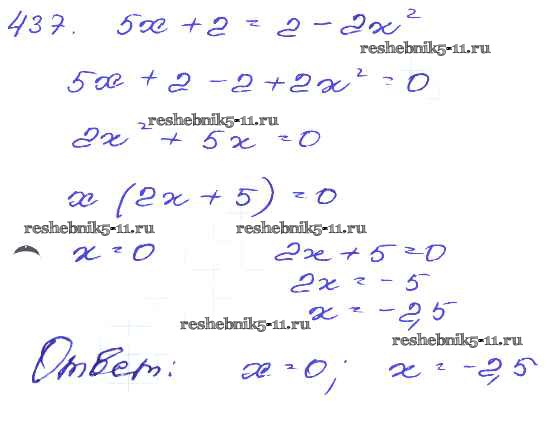 437. 5x + 2 = 2 - 2x²
reshebnik5-11.ru
5x + 2 - 2 + 2x² = 0
reshebnik5-11.ru
2x² + 5x = 0
x (2x + 5) = 0
reshebnik5-11.ru reshebnik5-11.ru
x = 0 2x + 5 = 0
2x = - 5
x = - 2,5
reshebnik5-11.ru reshebnik5-11.ru
Ответ: x = 0; x = - 2,5